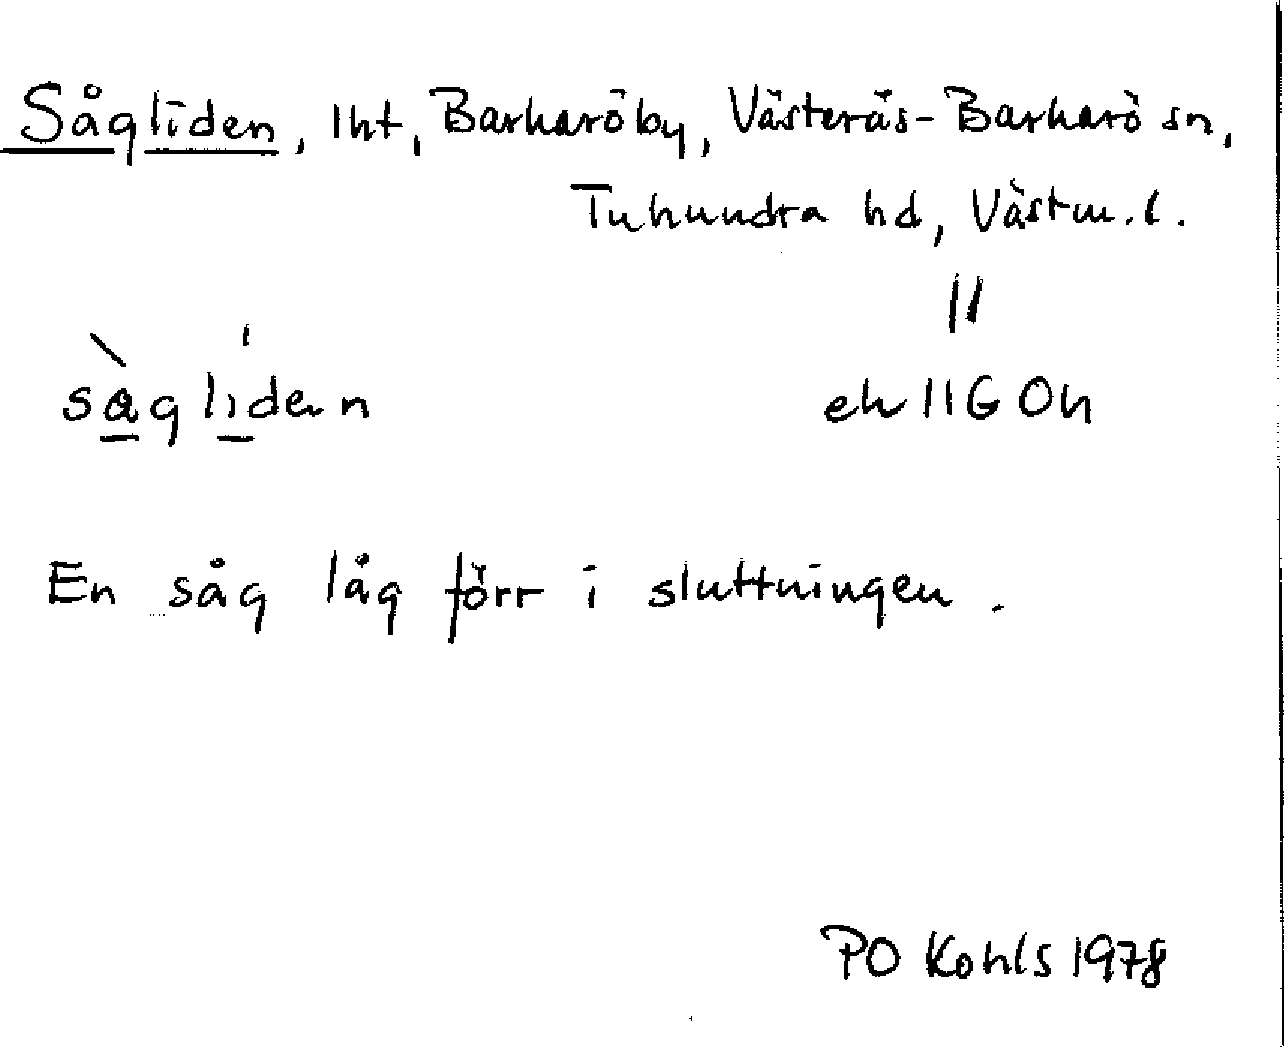 Sågliden, lht, Barkaröby, Västerås-Barkarö sn,
Tuhundra hd, Västm. l.
||
ságlidən
ek 11G 0h
En såg låg förr i sluttningen.
PO Kohls 1978